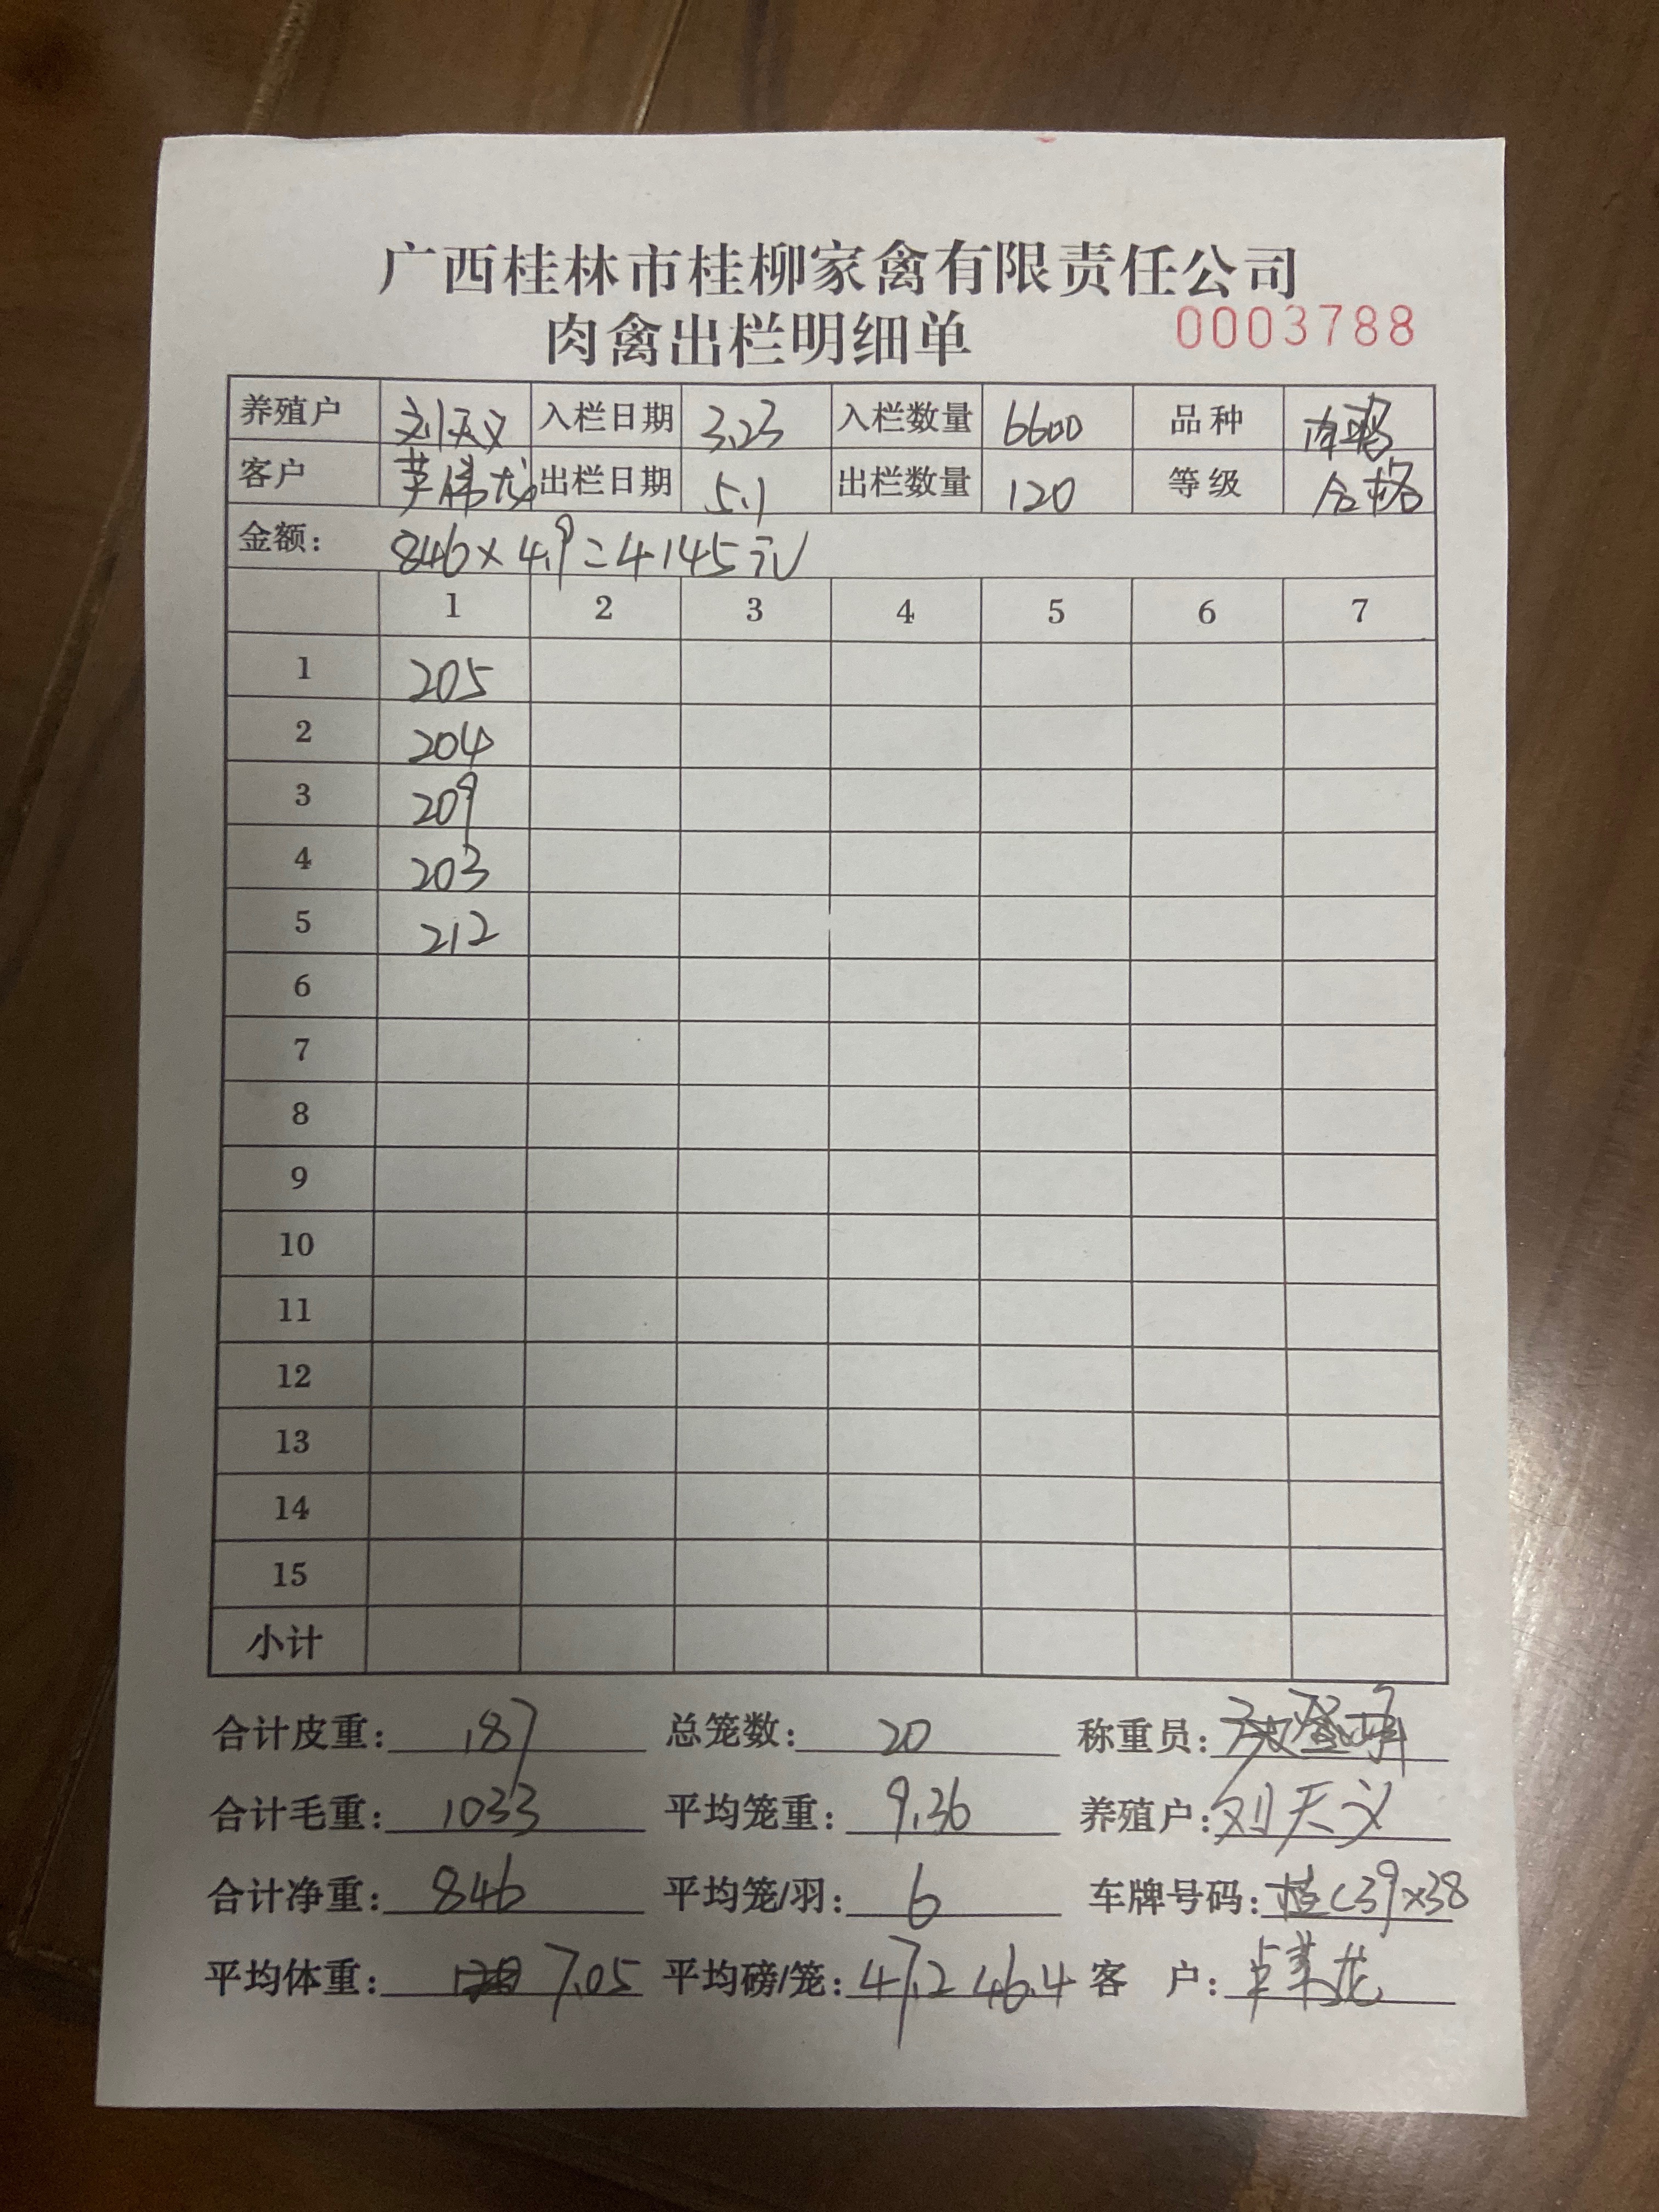 广西桂林市桂柳家禽有限责任公司
肉禽出栏明细单 0003788
养殖户 刘天义 入栏日期 3.23 入栏数量 6600 品种 肉鸭
客户 出栏日期 5.1 出栏数量 120 等级 合格
金额: 846×4.9=4145元
1 2 3 4 5 6 7
1 205
2 204
3 209
4 203
5 212
6
7
8
9
10
11
12
13
14
15
小计
合计皮重: 187 总笼数: 20 称重员:
合计毛重: 1033 平均笼重: 9.36 养殖户: 刘天义
合计净重: 846 平均笼/羽: 6 车牌号码: 桂C39×38
平均体重: 7.05 平均磅/笼: 47.2 46.4 客 户: